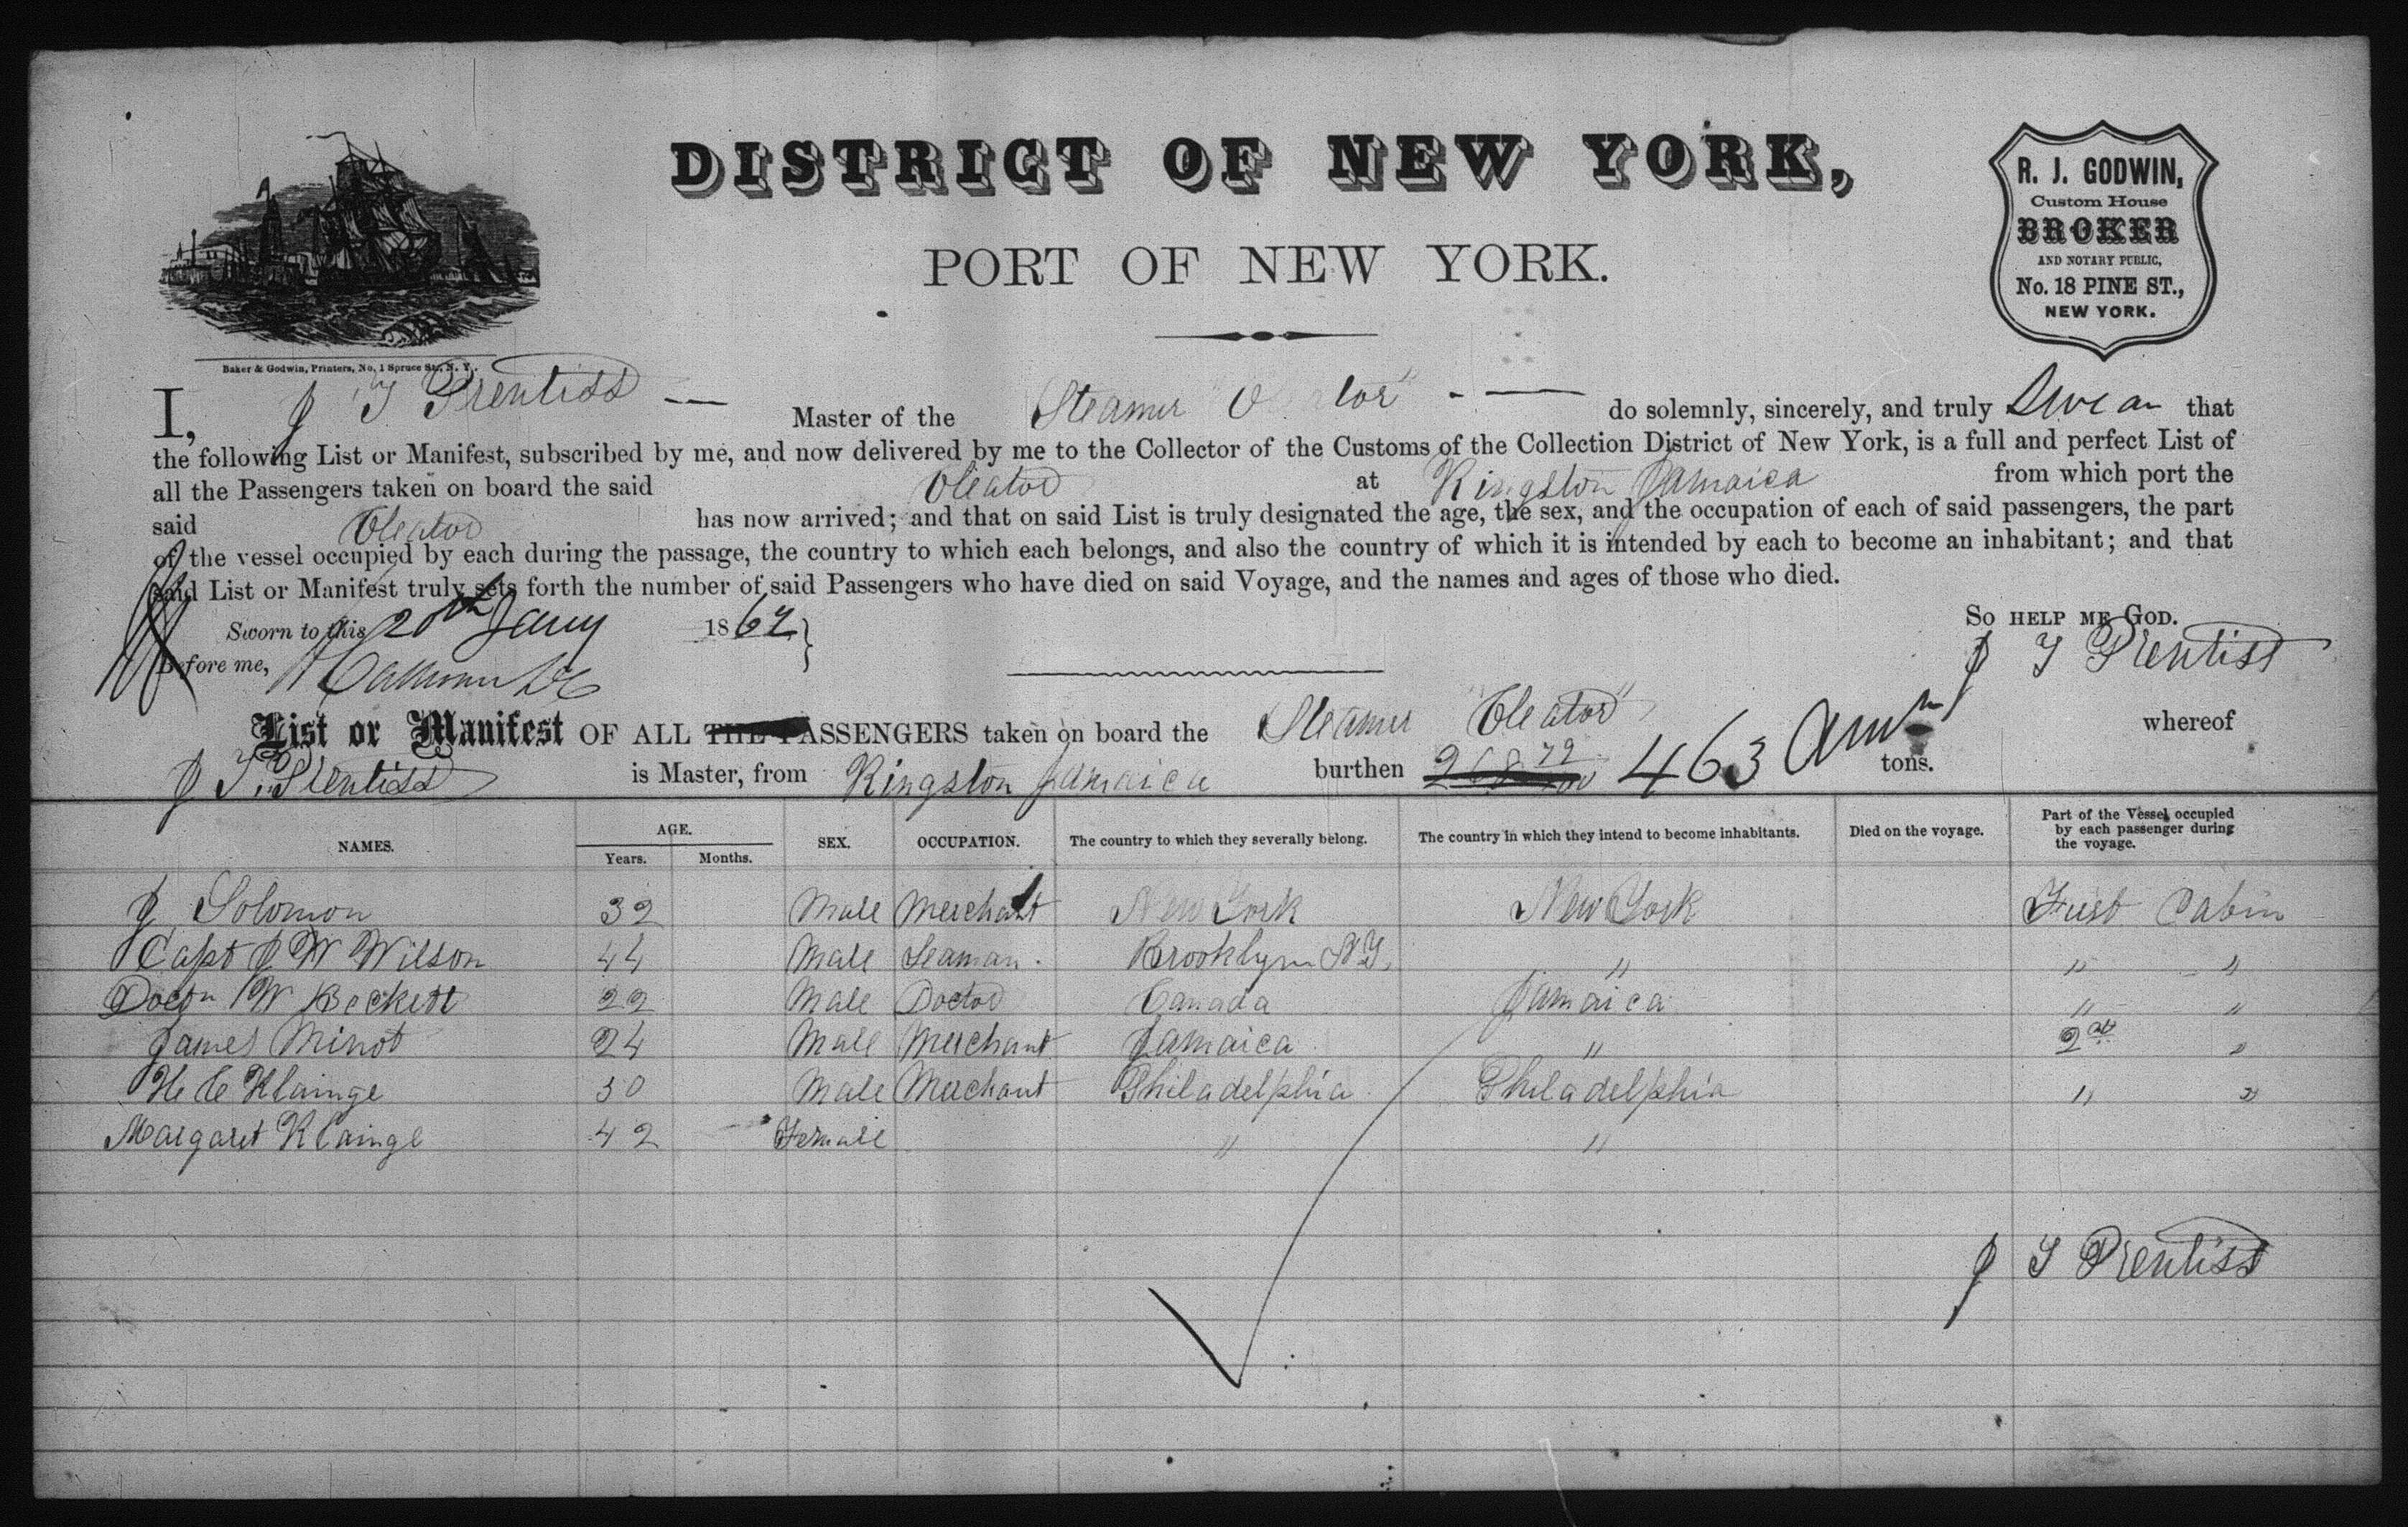 DISTRICT OF NEW YORK,
PORT OF NEW YORK.
R. J. GODWIN,
Custom House
BROKER
AND NOTARY PUBLIC,
No. 18 PINE ST.,
NEW YORK.
Baker & Godwin, Printers, No. 1 Spruce St., N. Y.
I, J T Prentiss — Master of the Steamer do solemnly, sincerely, and truly Swear that
the following List or Manifest, subscribed by me, and now delivered by me to the Collector of the Customs of the Collection District of New York, is a full and perfect List of
all the Passengers taken on board the said at Kingston Jamaica from which port the
said has now arrived; and that on said List is truly designated the age, the sex, and the occupation of each of said passengers, the part
of the vessel occupied by each during the passage, the country to which each belongs, and also the country of which it is intended by each to become an inhabitant; and that
said List or Manifest truly sets forth the number of said Passengers who have died on said Voyage, and the names and ages of those who died.
So help me God.
Sworn to this 20th Jany 1862
J T Prentiss
Before me,
List or Manifest OF ALL THE PASSENGERS taken on board the Steamer whereof
J T. Prentiss is Master, from Kingston Jamaica burthen 463 tons.
NAMES. AGE. Years. Months. SEX. OCCUPATION. The country to which they severally belong. The country in which they intend to become inhabitants. Died on the voyage. Part of the Vessel occupied by each passenger during the voyage.
J Solomon 32 Male Merchant New York New York First Cabin
Capt J W Wilson 44 Male Seaman. Brooklyn N Y. " " "
Doctr W Beckett 22 Male Doctor Canada Jamaica " "
James Minot 24 Male Merchant Jamaica " 2nd "
H C Klainge 30 Male Merchant Philadelphia Philadelphia " "
Margaret Klainge 42 Female " "
J T Prentiss